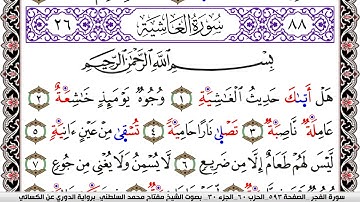 ٨٨ سُورَةُ الغَاشِيَةِ ٢٦
بِسْمِ اللَّهِ الرَّحْمَٰنِ الرَّحِيمِ
هَلْ أَتَىٰكَ حَدِيثُ الْغَٰشِيَةِ ١ وُجُوهٌ يَوْمَئِذٍ خَٰشِعَةٌ ٢
عَامِلَةٌ نَّاصِبَةٌ ٣ تَصْلَىٰ نَارًا حَامِيَةً ٤ تُسْقَىٰ مِنْ عَيْنٍ ءَانِيَةٍ ٥
لَّيْسَ لَهُمْ طَعَامٌ إِلَّا مِن ضَرِيعٍ ٦ لَّا يُسْمِنُ وَلَا يُغْنِي مِن جُوعٍ ٧
سورة الفجر الصفحة ٥٩٣ الحزب ٦٠ الجزء ٣٠ بصوت الشيخ مفتاح محمد السلطني برواية الدوري عن الكسائي